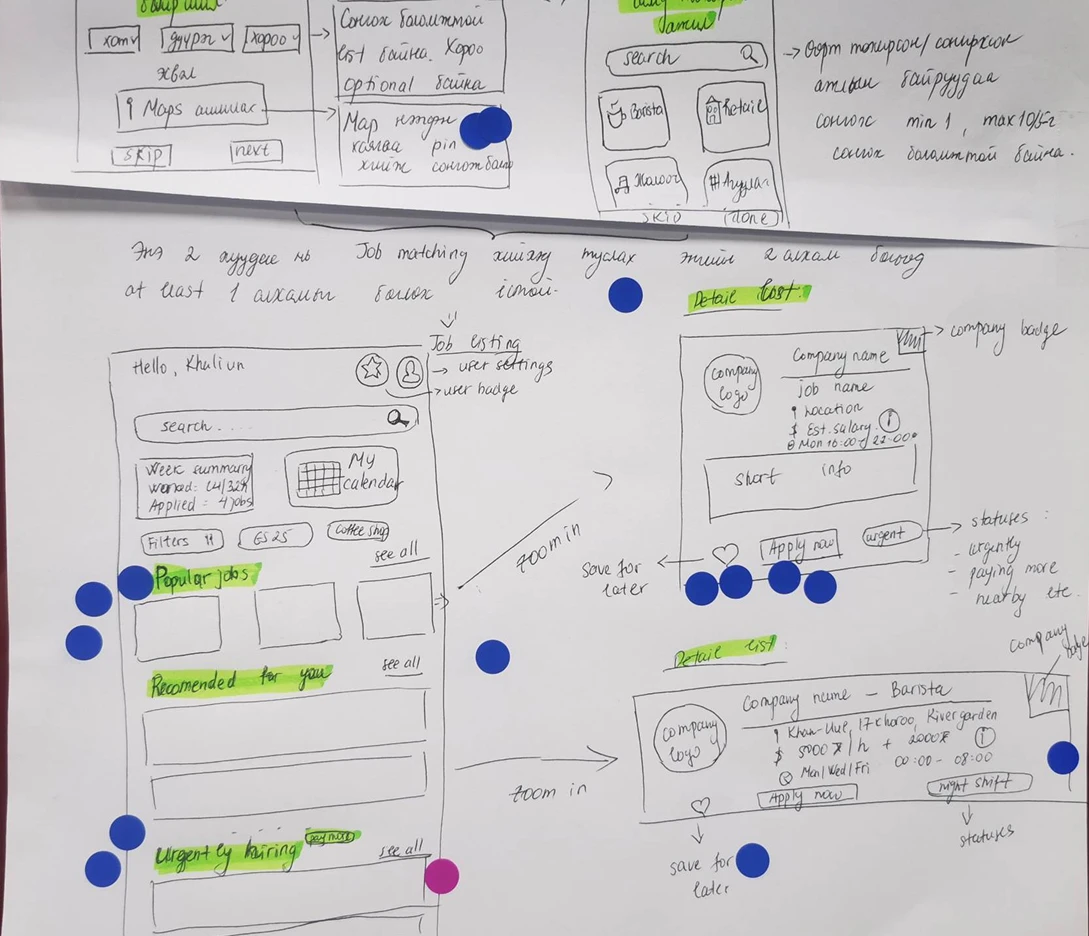 хот
дүүрэг
хороо
эсвэл
Maps ашиглах
SKIP
next
Сонгох боломжтой
list байна. Хороо
optional байна
Map нээгдэн
pin
хийж
search
Barista
Retail
Жолооч
SKIP
Done
сонгох min 1, max
сонгох боломжтой байна.
Энэ 2 нь Job matching хийхэд туслах
at least 1 алхамыг болох ёстой.
2 алхам
Detail list:
Job listing
user settings
user badge
Hello, Khaliun
search....
Week summary
Worked: 24/32h
Applied = 4 jobs
My
calendar
Filters
GS25
Coffee shop
see all
Popular jobs
zoom in
Recomended for you
see all
zoom in
Urgently hiring
pay more
see all
company badge
company
logo
Company name
job name
Location
$ Est. salary i
Mon 16:00-22:00
short info
Apply now
urgent
save for
later
statuses:
- urgently
- paying more
- nearby etc.
Detail list:
company
badge
company
logo
Company name - Barista
Khan-Uul, 17 khoroo, Rivergarden
$ 5000₮/h + 2000₮ i
Mon/Wed/Fri 00:00 - 08:00
Apply now
night shift
save for
later
statuses